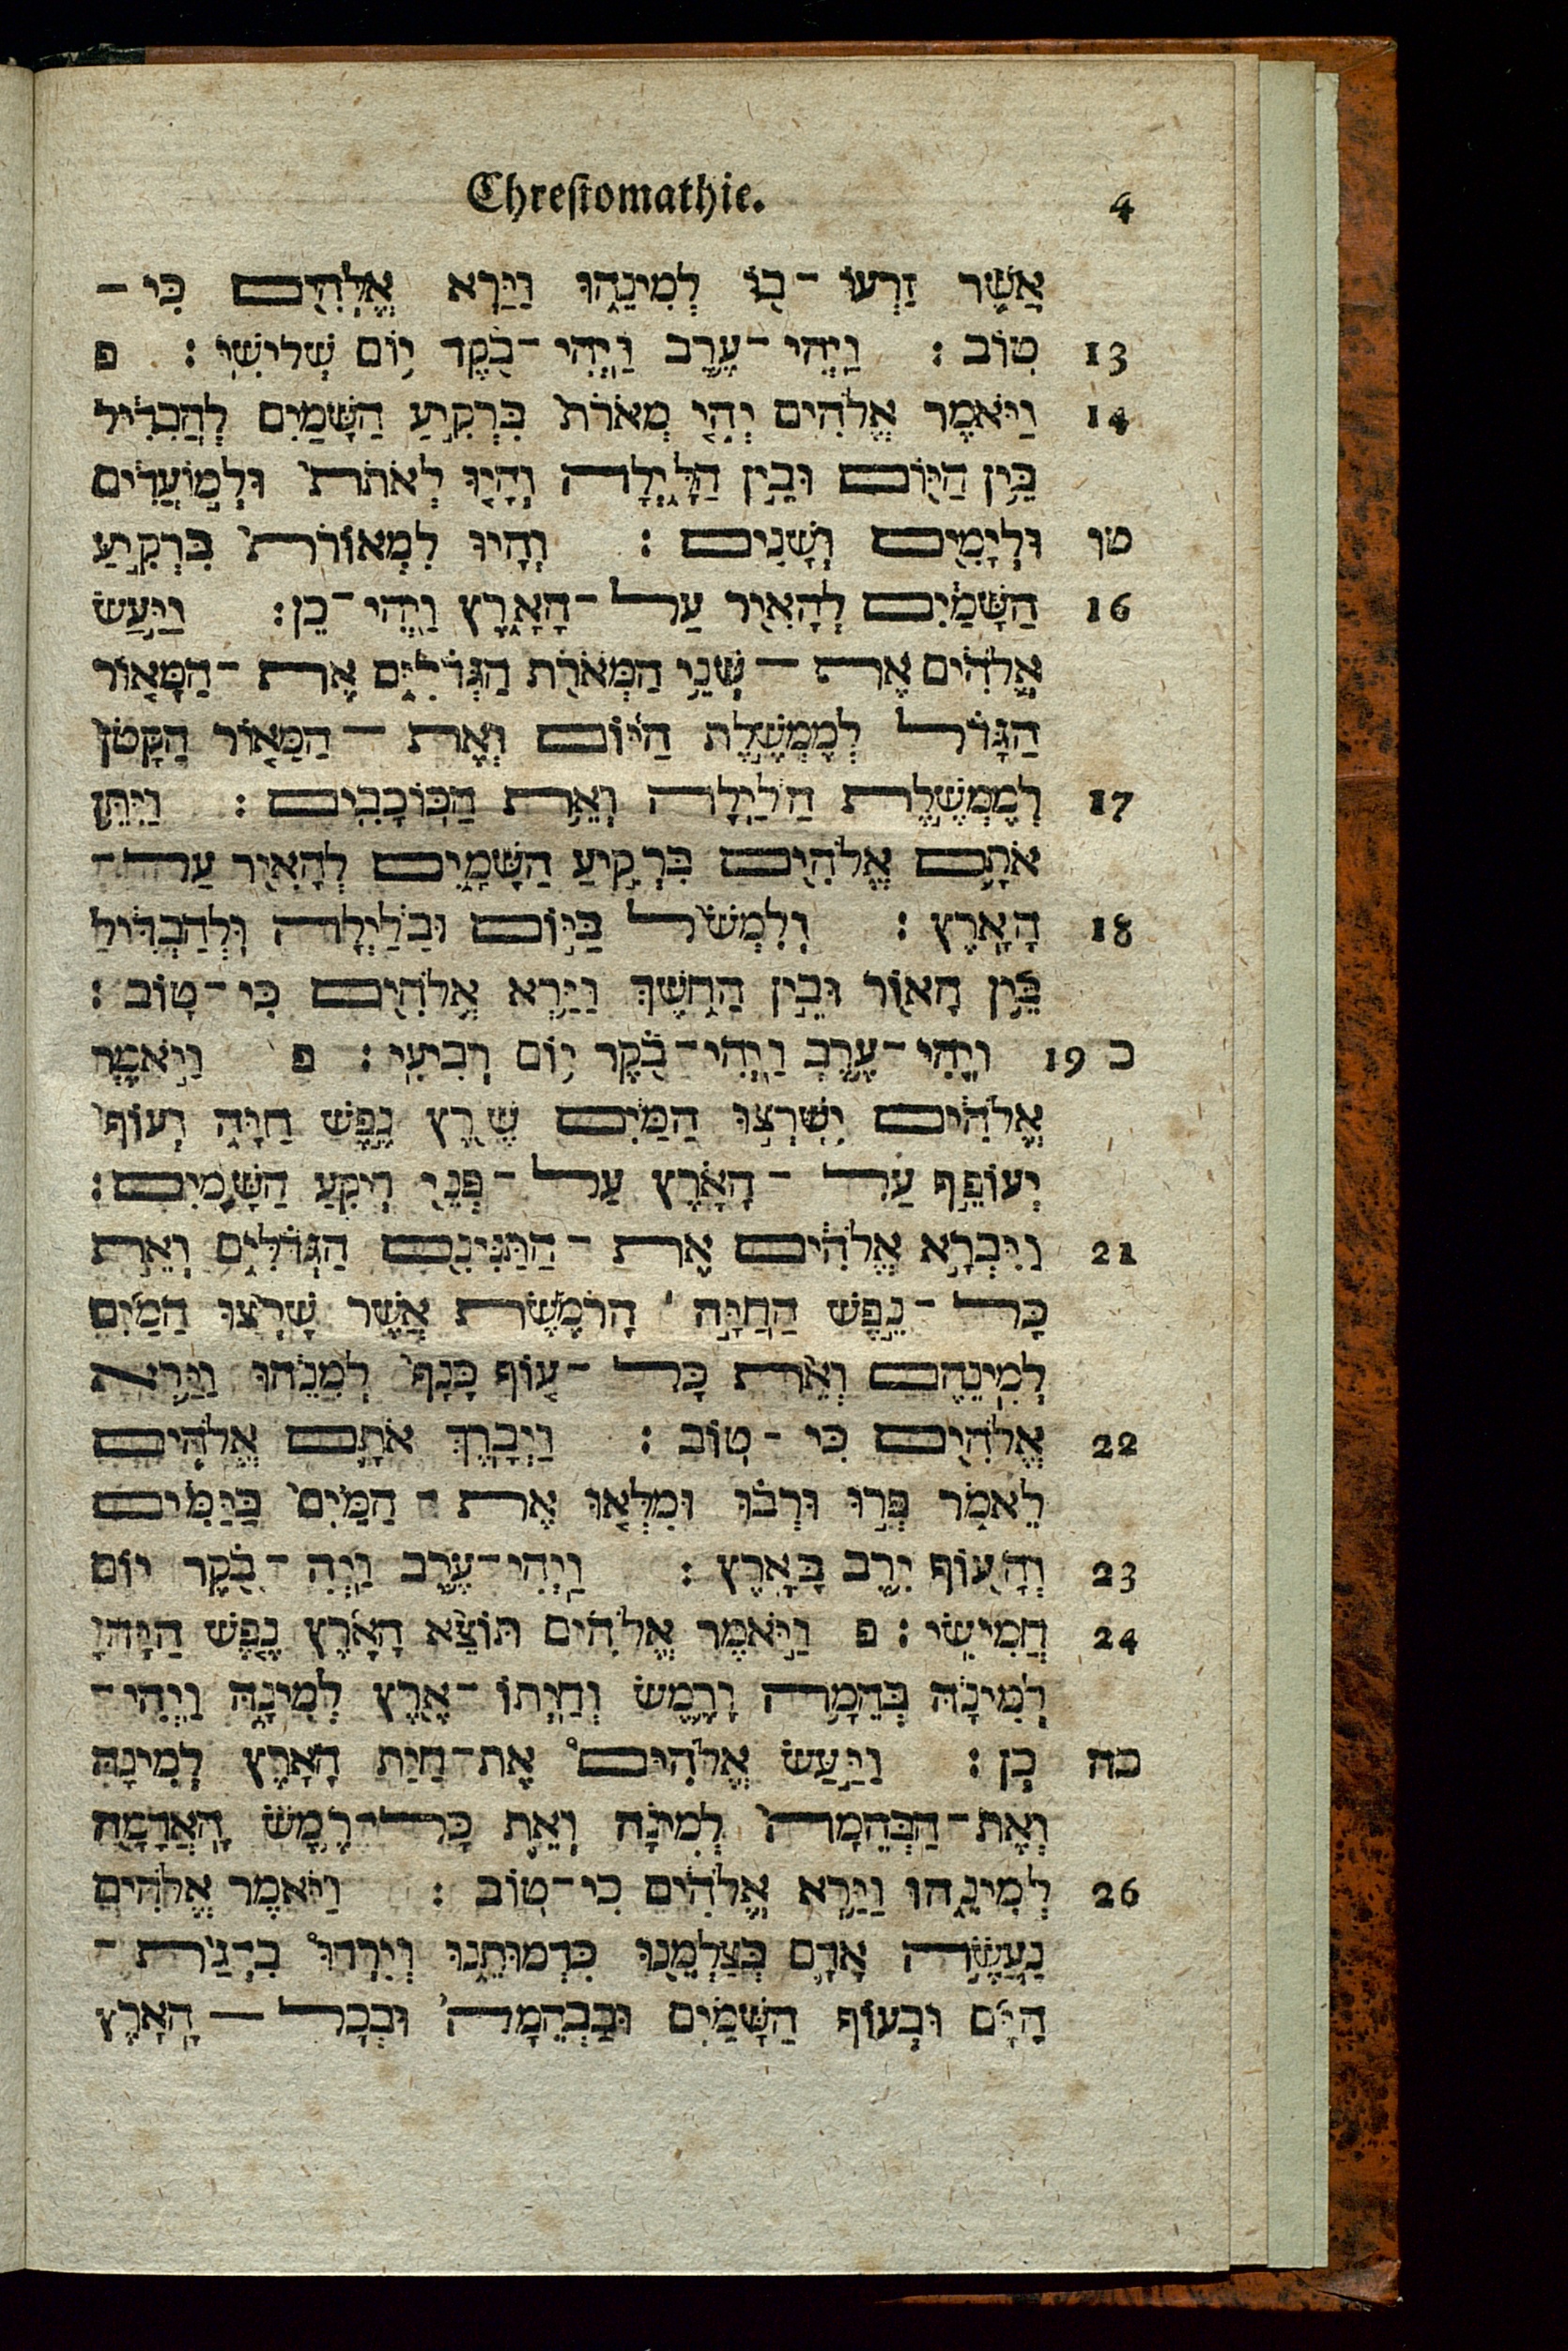 Chrestomathie. 4
אֲשֶׁר זַרְעוֹ־בוֹ לְמִינֵהוּ וַיַּרְא אֱלֹהִים כִּי־
13 טוֹב : וַיְהִי־עֶרֶב וַיְהִי־בֹקֶר יוֹם שְׁלִישִׁי : פ
14 וַיֹּאמֶר אֱלֹהִים יְהִי מְאֹרֹת בִּרְקִיעַ הַשָּׁמַיִם לְהַבְדִּיל
בֵּין הַיּוֹם וּבֵין הַלָּיְלָה וְהָיוּ לְאֹתֹת וּלְמוֹעֲדִים
טו וּלְיָמִים וְשָׁנִים : וְהָיוּ לִמְאוֹרֹת בִּרְקִיעַ
16 הַשָּׁמַיִם לְהָאִיר עַל־הָאָרֶץ וַיְהִי־כֵן : וַיַּעַשׂ
אֱלֹהִים אֶת־שְׁנֵי הַמְּאֹרֹת הַגְּדֹלִים אֶת־הַמָּאוֹר
הַגָּדֹל לְמֶמְשֶׁלֶת הַיּוֹם וְאֶת־הַמָּאוֹר הַקָּטֹן
17 לְמֶמְשֶׁלֶת הַלַּיְלָה וְאֵת הַכּוֹכָבִים : וַיִּתֵּן
אֹתָם אֱלֹהִים בִּרְקִיעַ הַשָּׁמָיִם לְהָאִיר עַל־
18 הָאָרֶץ : וְלִמְשֹׁל בַּיּוֹם וּבַלַּיְלָה וּלְהַבְדִּיל
בֵּין הָאוֹר וּבֵין הַחֹשֶׁךְ וַיַּרְא אֱלֹהִים כִּי־טוֹב :
כ 19 וַיְהִי־עֶרֶב וַיְהִי־בֹקֶר יוֹם רְבִיעִי : פ וַיֹּאמֶר
אֱלֹהִים יִשְׁרְצוּ הַמַּיִם שֶׁרֶץ נֶפֶשׁ חַיָּה וְעוֹף
יְעוֹפֵף עַל־הָאָרֶץ עַל־פְּנֵי רְקִעַ הַשָּׁמָיִם :
21 וַיִּבְרָא אֱלֹהִים אֶת־הַתַּנִּינִם הַגְּדֹלִים וְאֵת
כָּל־נֶפֶשׁ הַחַיָּה הָרֹמֶשֶׂת אֲשֶׁר שָׁרְצוּ הַמַּיִם
לְמִינֵהֶם וְאֵת כָּל־עוֹף כָּנָף לְמִנֵהוּ וַיַּרְא
22 אֱלֹהִים כִּי־טוֹב : וַיְבָרֶךְ אֹתָם אֱלֹהִים
לֵאמֹר פְּרוּ וּרְבוּ וּמִלְאוּ אֶת־הַמַּיִם בַּיַּמִּים
23 וְהָעוֹף יִרֶב בָּאָרֶץ : וַיְהִי־עֶרֶב וַיְהִ־בֹקֶר יוֹם
24 חֲמִישִׁי : פ וַיֹּאמֶר אֱלֹהִים תּוֹצֵא הָאָרֶץ נֶפֶשׁ
לְמִינָהּ בְּהֵמָה וָרֶמֶשׂ וְחַיְתוֹ־אֶרֶץ לְמִינָהּ וַיְהִי־
כה כֵן : וַיַּעַשׂ אֱלֹהִים אֶת־חַיַּת הָאָרֶץ לְמִינָהּ
וְאֶת־הַבְּהֵמָה לְמִינָהּ וְאֵת כָּל־רֶמֶשׂ הָאֲדָמָה
26 לְמִינֵהוּ וַיַּרְא אֱלֹהִים כִּי־טוֹב : וַיֹּאמֶר אֱלֹהִים
נַעֲשֶׂה אָדָם בְּצַלְמֵנוּ כִּדְמוּתֵנוּ וְיִרְדּוּ בִדְגַת־
הַיָּם וּבְעוֹף הַשָּׁמַיִם וּבַבְּהֵמָה וּבְכָל־הָאָרֶץ